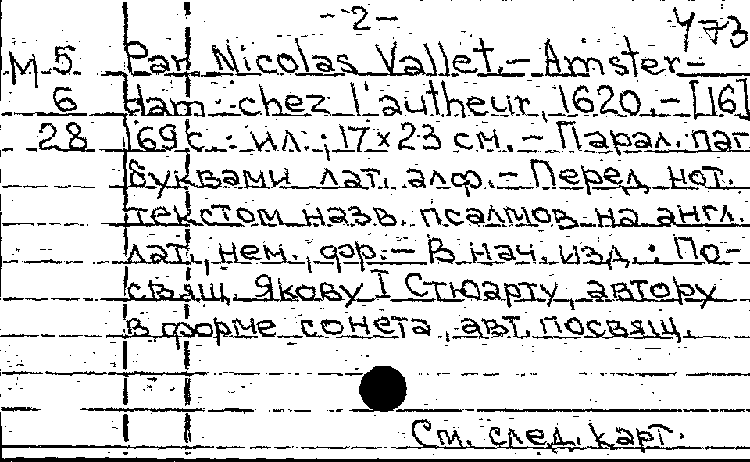 -2-
473
М 5 Par Nicolas Vallet.- Amster-
6 dam : chez l'autheur, 1620.- [16]
28 169 с. : ил. ; 17×23 см.- Парал. паг
буквами лат. алф.- Перед нот.
текстом назв. псалмов на англ.
лат., нем., фр.- В нач. изд.: По-
свящ. Якову I Стюарту, автору
в форме сонета, авт. посвящ.
См. след. карт.